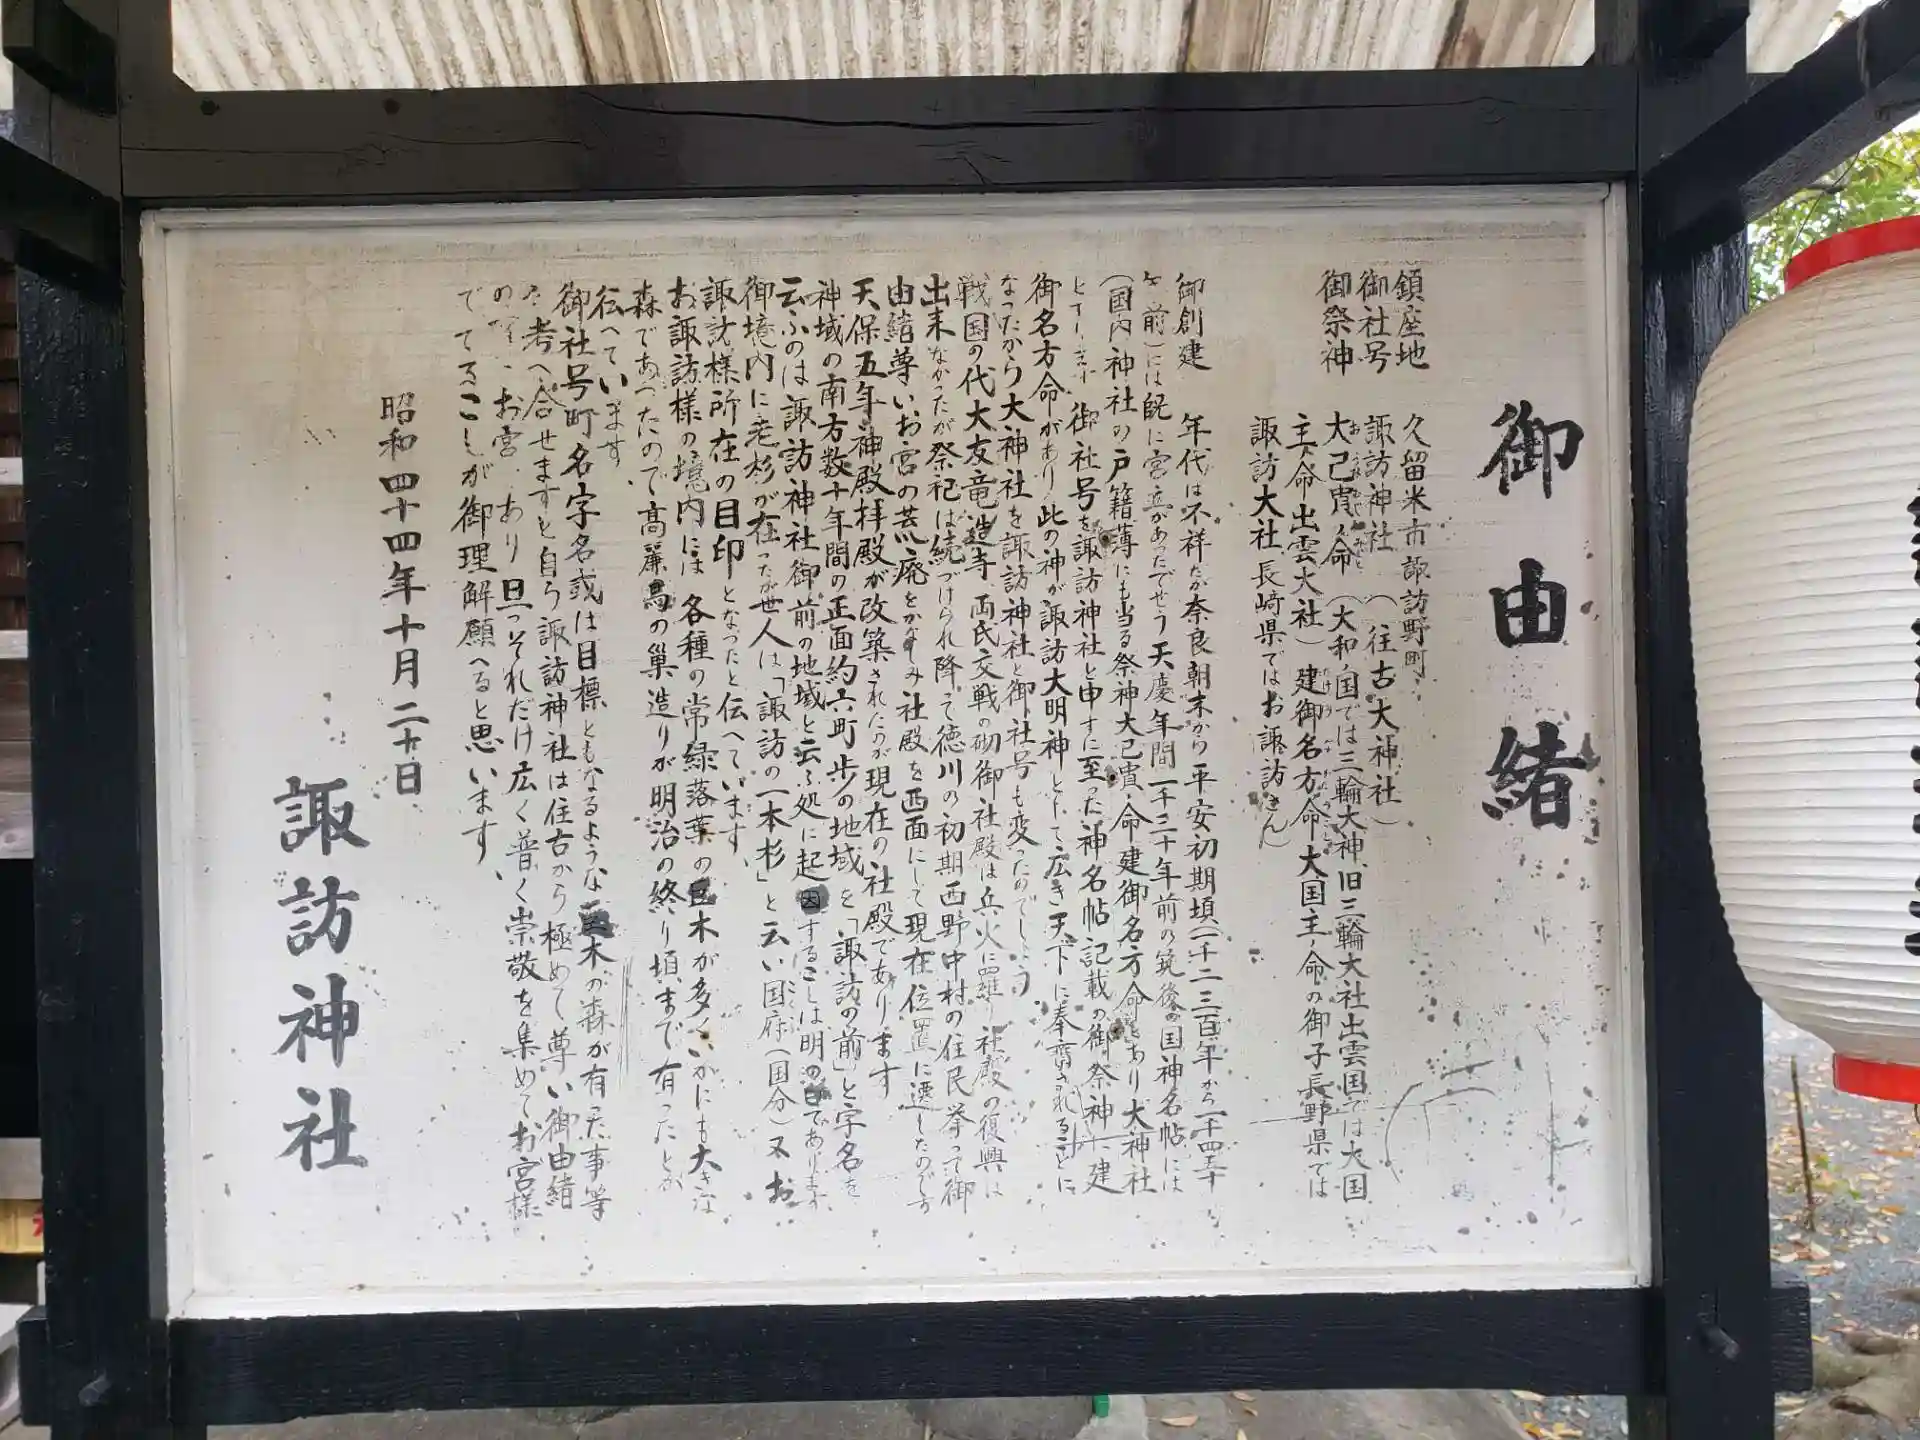 御由緒
鎮座地　久留米市諏訪野町
御社号　諏訪神社　(往古大神社)
御祭神　大己貴命(大和国では三輪大神、旧三輪大社出雲国では大国
主命出雲大社)建御名方命大国主命の御子長野県では
諏訪大社長崎県ではお諏訪さん
御創建　年代は不祥だが奈良朝末から平安初期頃(千二三百年から
前)には既に宮立があったでせう天慶年間一千三十年前の筑後の国神名帖には
(国内神社の戸籍薄にも当る祭神大己貴命建御名方命とあり大神社
御社号を諏訪神社と申すに至った神名帖記載の御祭神に建
御名方命があり此の神が諏訪大明神として広き天下に奉斎されることに
なったから大神社を諏訪神社と御社号も変ったのでしょう
戦国の代大友竜造寺両氏交戦の砌御社殿は兵火に羅り社殿の復興は
出来なかったが祭祀は続づけられ降って徳川の初期西野中村の住民挙って御
由緒尊いお宮の荒廃をかなしみ社殿を西面にして現在位置に遷したのです
天保五年神殿拝殿が改築されたのが現在の社殿であります
神域の南方数十年間の正面約六町歩の地域を「諏訪の前」と字名を
云ふのは諏訪神社御前の地域と云ふ処に起因することは明の白でありますが
御境内に老杉が在ったが世人は「諏訪の一本杉」と云い国府(国分)又お
諏訪様所在の目印となったと伝へています、
お諏訪様の境内には各種の常緑落葉の巨木が多くいかにも大きな
森であったので高麗烏の巣造りが明治の終り頃まで有ったとか
伝へています、
御社号町名字名或は目標ともなるような巨木の森が有った事等
考へ合せますと自ら諏訪神社は住古から極めて尊い御由緒
のお宮であり旦つそれだけ広く普く崇敬を集めてお宮様
でてることが御理解願へると思います、
昭和四十四年十月二十日
諏訪神社